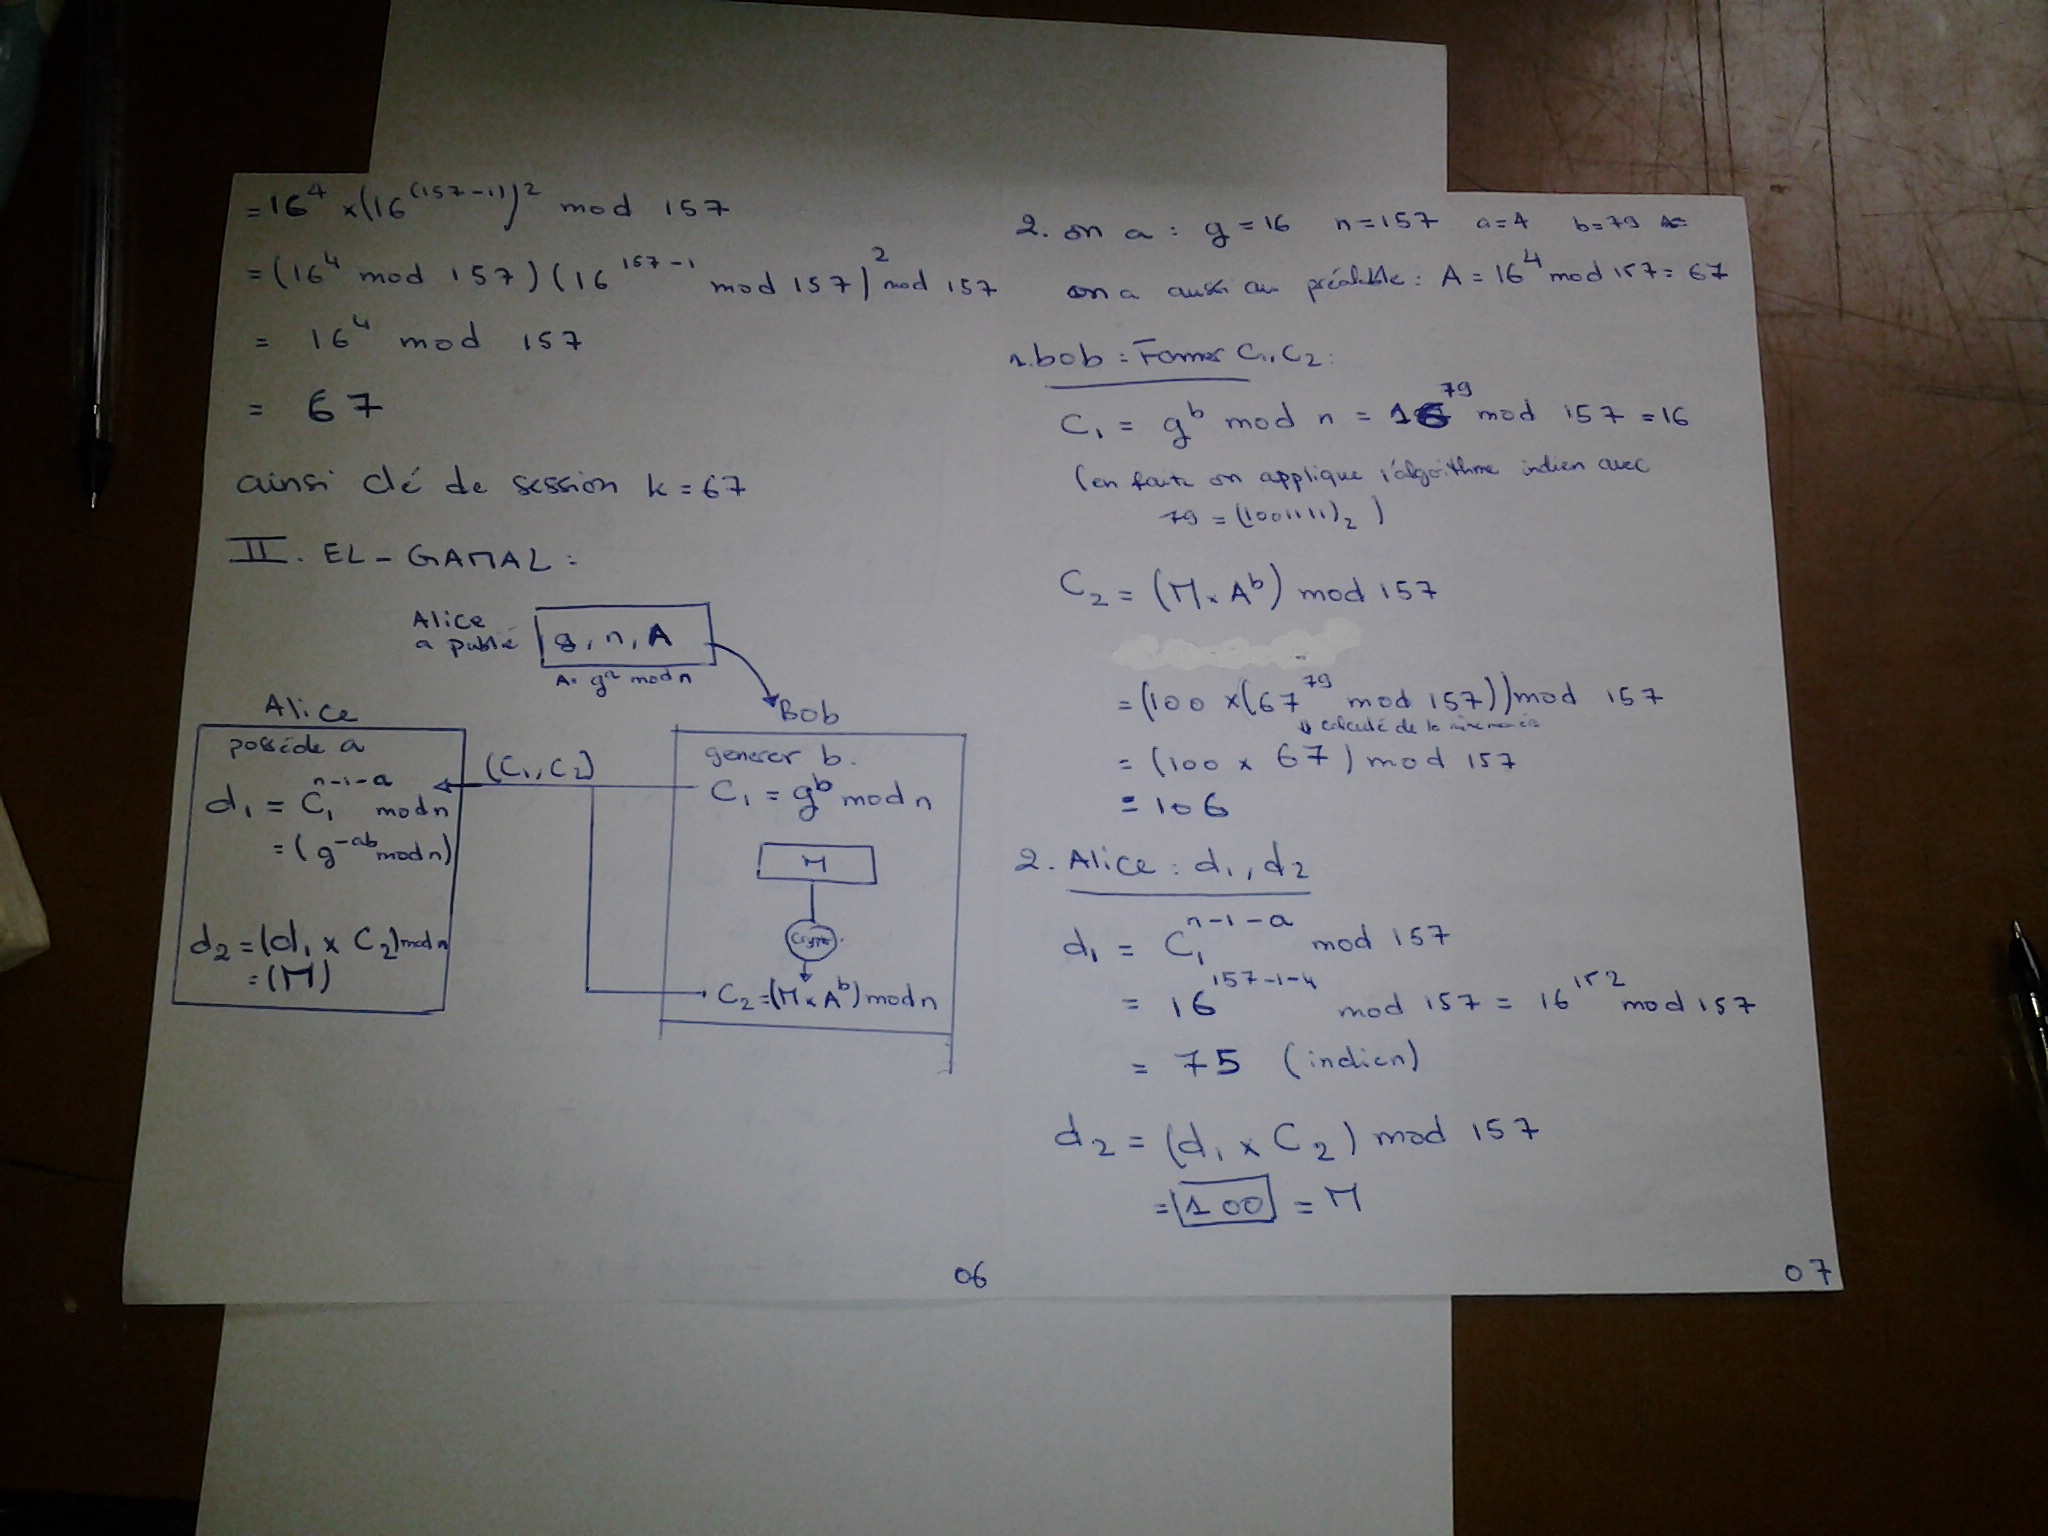 = 16^4 x (16^(157-1))^2 mod 157
= (16^4 mod 157) (16^157-1 mod 157)^2 mod 157
= 16^4 mod 157
= 67
ainsi clé de session k = 67
II. EL-GAMAL :
Alice
a publié
g, n, A
A = g^a mod n
Alice
possède a
d1 = C1^n-1-a mod n
= (g^-ab mod n)
d2 = (d1 x C2) mod n
= (M)
(C1, C2)
Bob
generer b.
C1 = g^b mod n
M
Crypt.
C2 = (M x A^b) mod n
06
2. on a : g = 16 n = 157 a = 4 b = 79
on a aussi au préalable : A = 16^4 mod 157 = 67
1. bob : Former C1, C2 :
C1 = g^b mod n = 16^79 mod 157 = 16
(en faite on applique l'algorithme indien avec
79 = (1001111)2 )
C2 = (M x A^b) mod 157
= (100 x (67^79 mod 157)) mod 157
calculé de la
= (100 x 67) mod 157
= 106
2. Alice : d1, d2
d1 = C1^n-1-a mod 157
= 16^157-1-4 mod 157 = 16^152 mod 157
= 75 (indien)
d2 = (d1 x C2) mod 157
= 100 = M
07